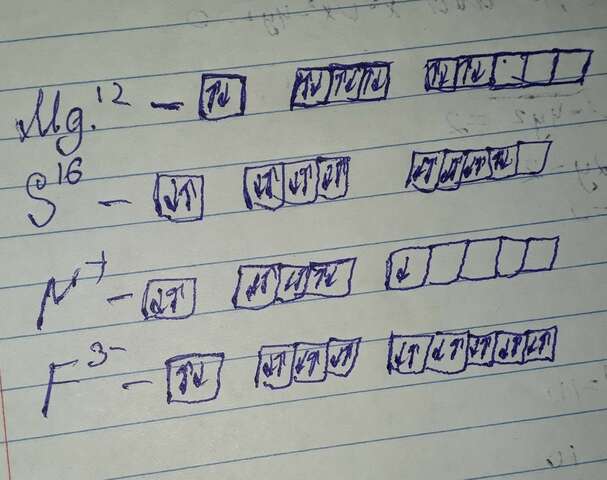 Mg.¹² - [↑↓] [↑↓][↑↓][↑↓] [↑↓][↑↓][ ][ ][ ]
S¹⁶ - [↓↑] [↓↑][↓↑][↓↑] [↓↑][↓↑][↓↑][↑↓][ ]
N⁷ - [↓↑] [↓↑][↓↑][↑↓] [↓][ ][ ][ ][ ]
F³⁻ - [↑↓] [↓↑][↓↑][↓↑] [↓↑][↓↑][↓↑][↓↑][↓↑]